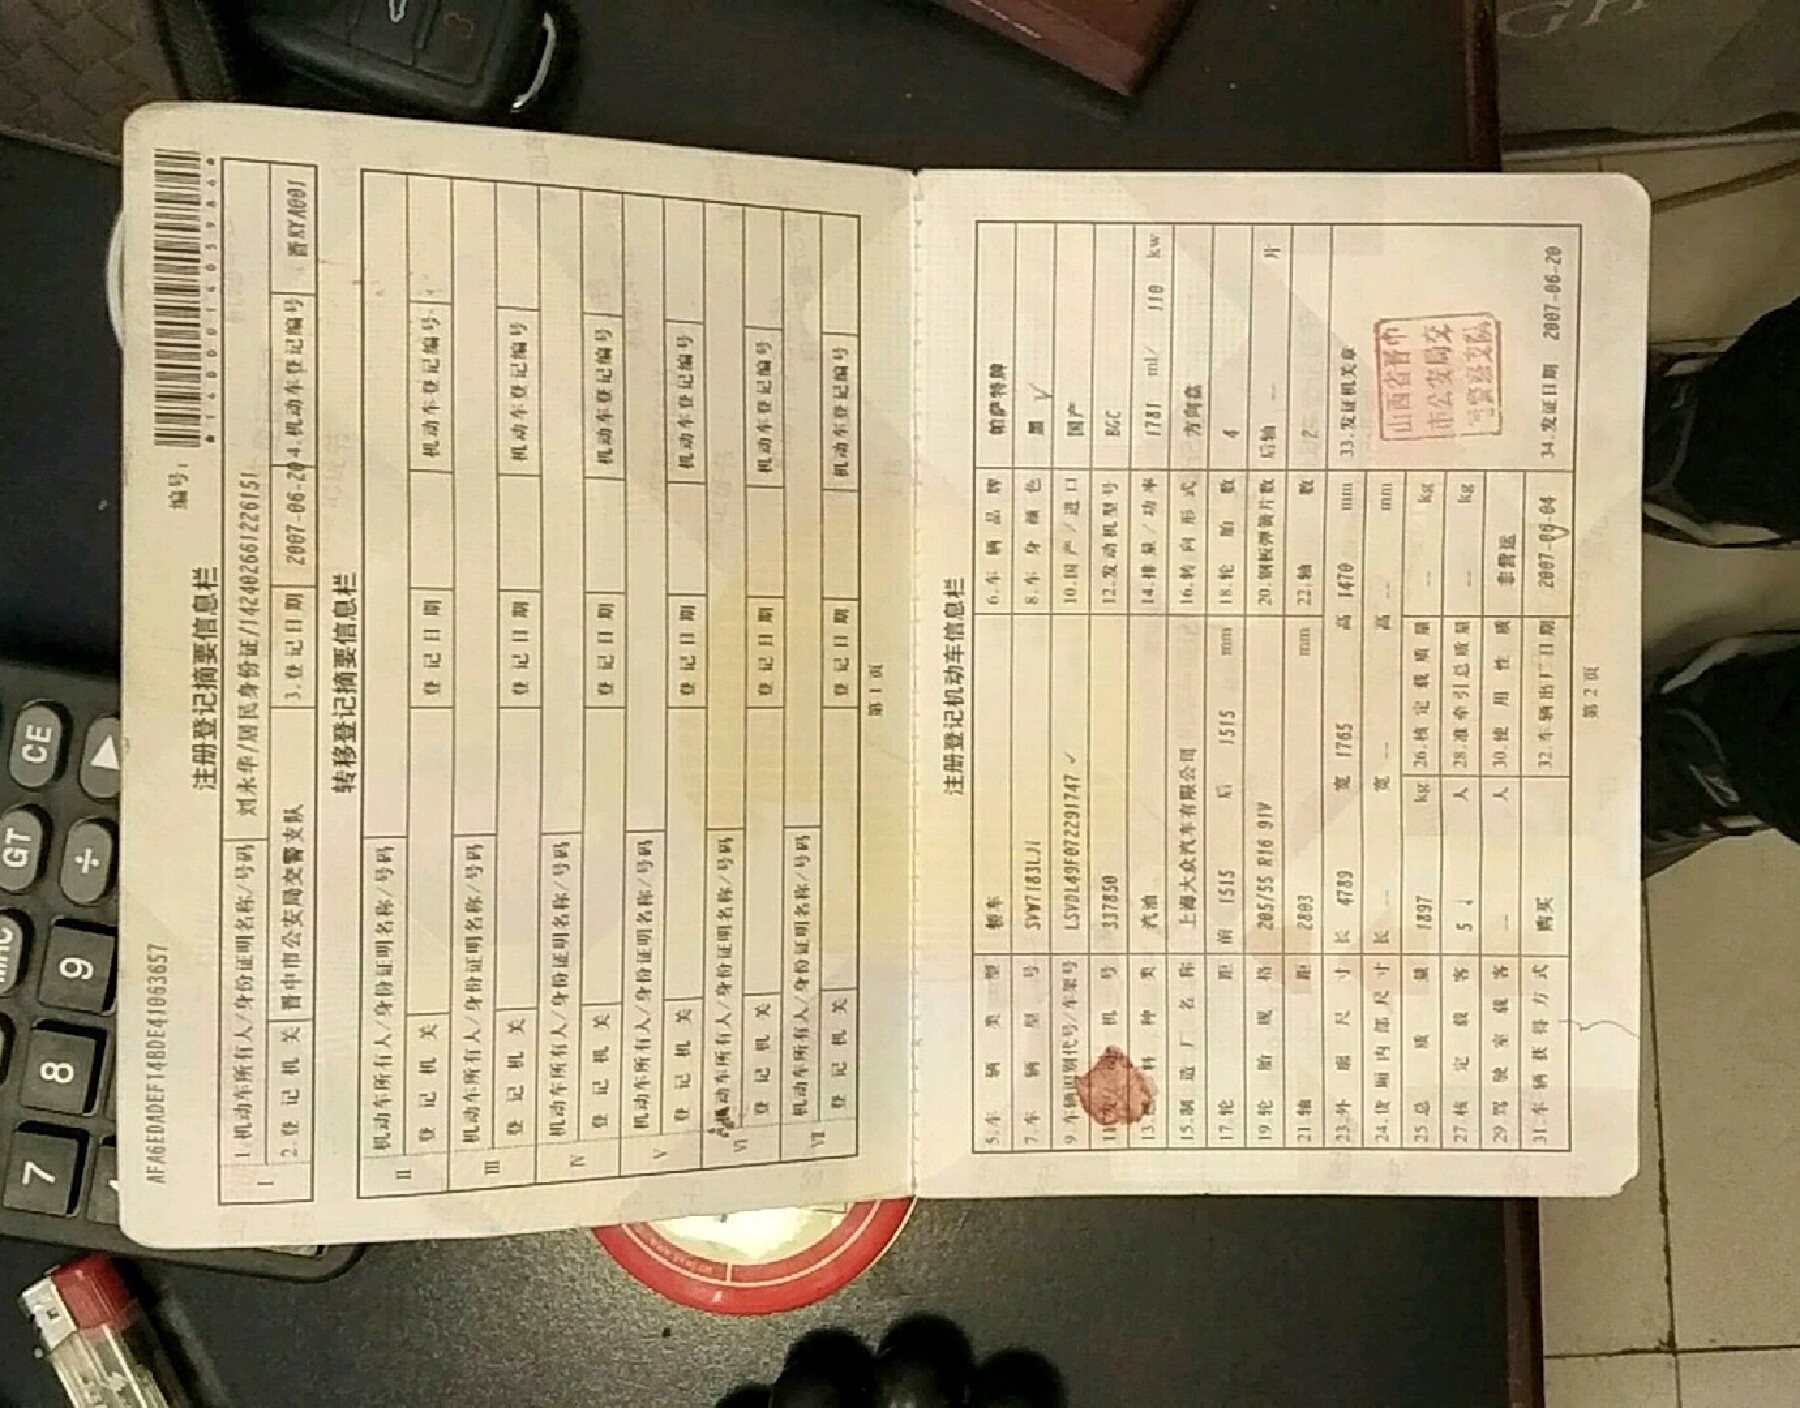 AFA6EDADEF14BDE41063657
编号:
注册登记摘要信息栏
I 1.机动车所有人/身份证明名称/号码 刘永华/居民身份证/142402661226151
2.登记机关 晋中市公安局交警支队 3.登记日期 2007-06-20 4.机动车登记编号 晋KYA001
转移登记摘要信息栏
II 机动车所有人/身份证明名称/号码
登记机关 登记日期 机动车登记编号
III 机动车所有人/身份证明名称/号码
登记机关 登记日期 机动车登记编号
IV 机动车所有人/身份证明名称/号码
登记机关 登记日期 机动车登记编号
V 机动车所有人/身份证明名称/号码
登记机关 登记日期 机动车登记编号
VI 机动车所有人/身份证明名称/号码
登记机关 登记日期 机动车登记编号
VII 机动车所有人/身份证明名称/号码
登记机关 登记日期 机动车登记编号
第1页
注册登记机动车信息栏
5.车辆类型 轿车 6.车辆品牌 帕萨特牌
7.车辆型号 SVW7183LJI 8.车身颜色 黑
9.车辆识别代号/车架号 LSVDL49F072291747 10.国产/进口 国产
11. 机号 337850 12.发动机型号 BGC
13. 料种类 汽油 14.排量/功率 1781 ml/ 110 kw
15.制造厂名称 上海大众汽车有限公司 16.转向形式 方向盘
17.轮距 前 1515 后 1515 mm 18.轮胎数 4
19.轮胎规格 205/55 R16 91V 20.钢板弹簧片数 后轴 -- 片
21.轴距 2803 mm 22.轴数 2
23.外廓尺寸 长 4789 宽 1765 高 1470 mm 33.发证机关章
24.货厢内部尺寸 长 -- 宽 -- 高 -- mm
25.总质量 1897 kg 26.核定载质量 -- kg
27.核定载客 5 人 28.准牵引总质量 -- kg
29.驾驶室载客 -- 人 30.使用性质 非营运
31.车辆获得方式 购买 32.车辆出厂日期 2007-06-04 34.发证日期 2007-06-20
山西省晋中
市公安局交
通警察支队
第2页
CE
GT
÷
7
8
9
3